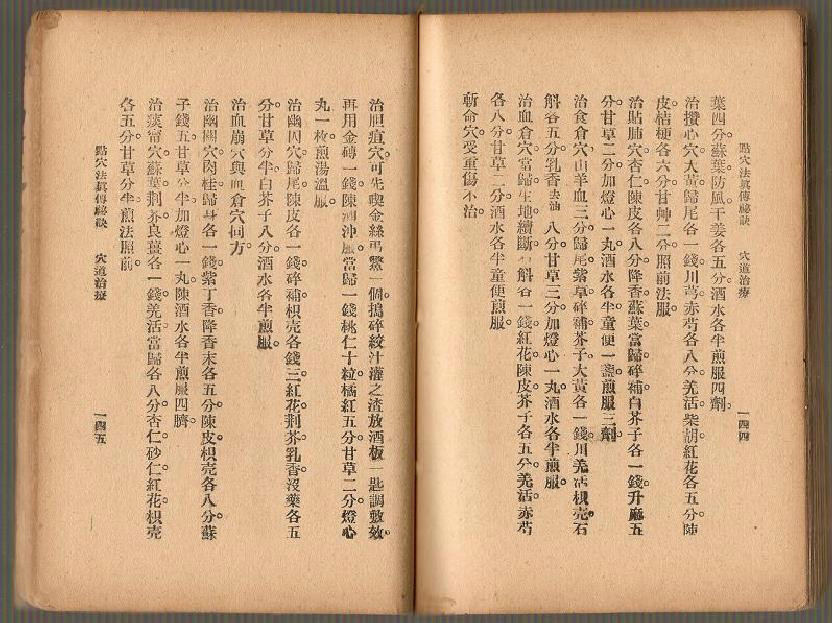 點穴法眞傳秘訣　穴道治療　一四四
葉四分蘇葉防風干姜各五分酒水各半煎服四劑。
治攢心穴大黃歸尾各一錢川芎赤芍各八分羌活柴胡紅花各五分陳
皮桔梗各六分甘艸二分照前法服
治貼肺穴杏仁陳皮各八分降香蘇葉當歸碎補白芥子各一錢升麻五
分甘草二分加燈心一丸酒水各半童便一盞煎服三劑
治食倉穴山羊血三分歸尾紫草碎補芥子大黃各一錢川羌活枳壳石
斛各五分乳香去油八分甘草三分加燈心一丸酒水各半煎服。
治血倉穴當歸生地續斷石斛各一錢紅花陳皮芥子各五分羌活赤芍
各八分甘草二分酒水各半童便煎服。
斬命穴受重傷不治
治胆疽穴可先喫金絲弔鱉一個搗碎絞汁灌之渣放酒板一匙調敷效。
再用金磚一錢陳酒沖服當歸一錢桃仁十粒橘紅五分甘草二分燈心
丸一枚煎湯溫服
治幽囚穴歸尾陳皮各一錢碎補枳壳各錢三紅花荆芥乳香沒藥各五
分甘草分半白芥子八分酒水各半煎服。
治血崩穴與血倉穴同方
治幽關穴肉桂歸尾各一錢紫丁香降香末各五分陳皮枳壳各八分蘇
子錢五甘草分半加燈心一丸陳酒水各半煎服四臍
治痰穴蘇葉荆芥良薑各一錢羌活當歸各八分杏仁砂仁紅花枳壳
各五分甘草分半煎法照前
點穴法眞傳秘訣　穴道治療　一四五